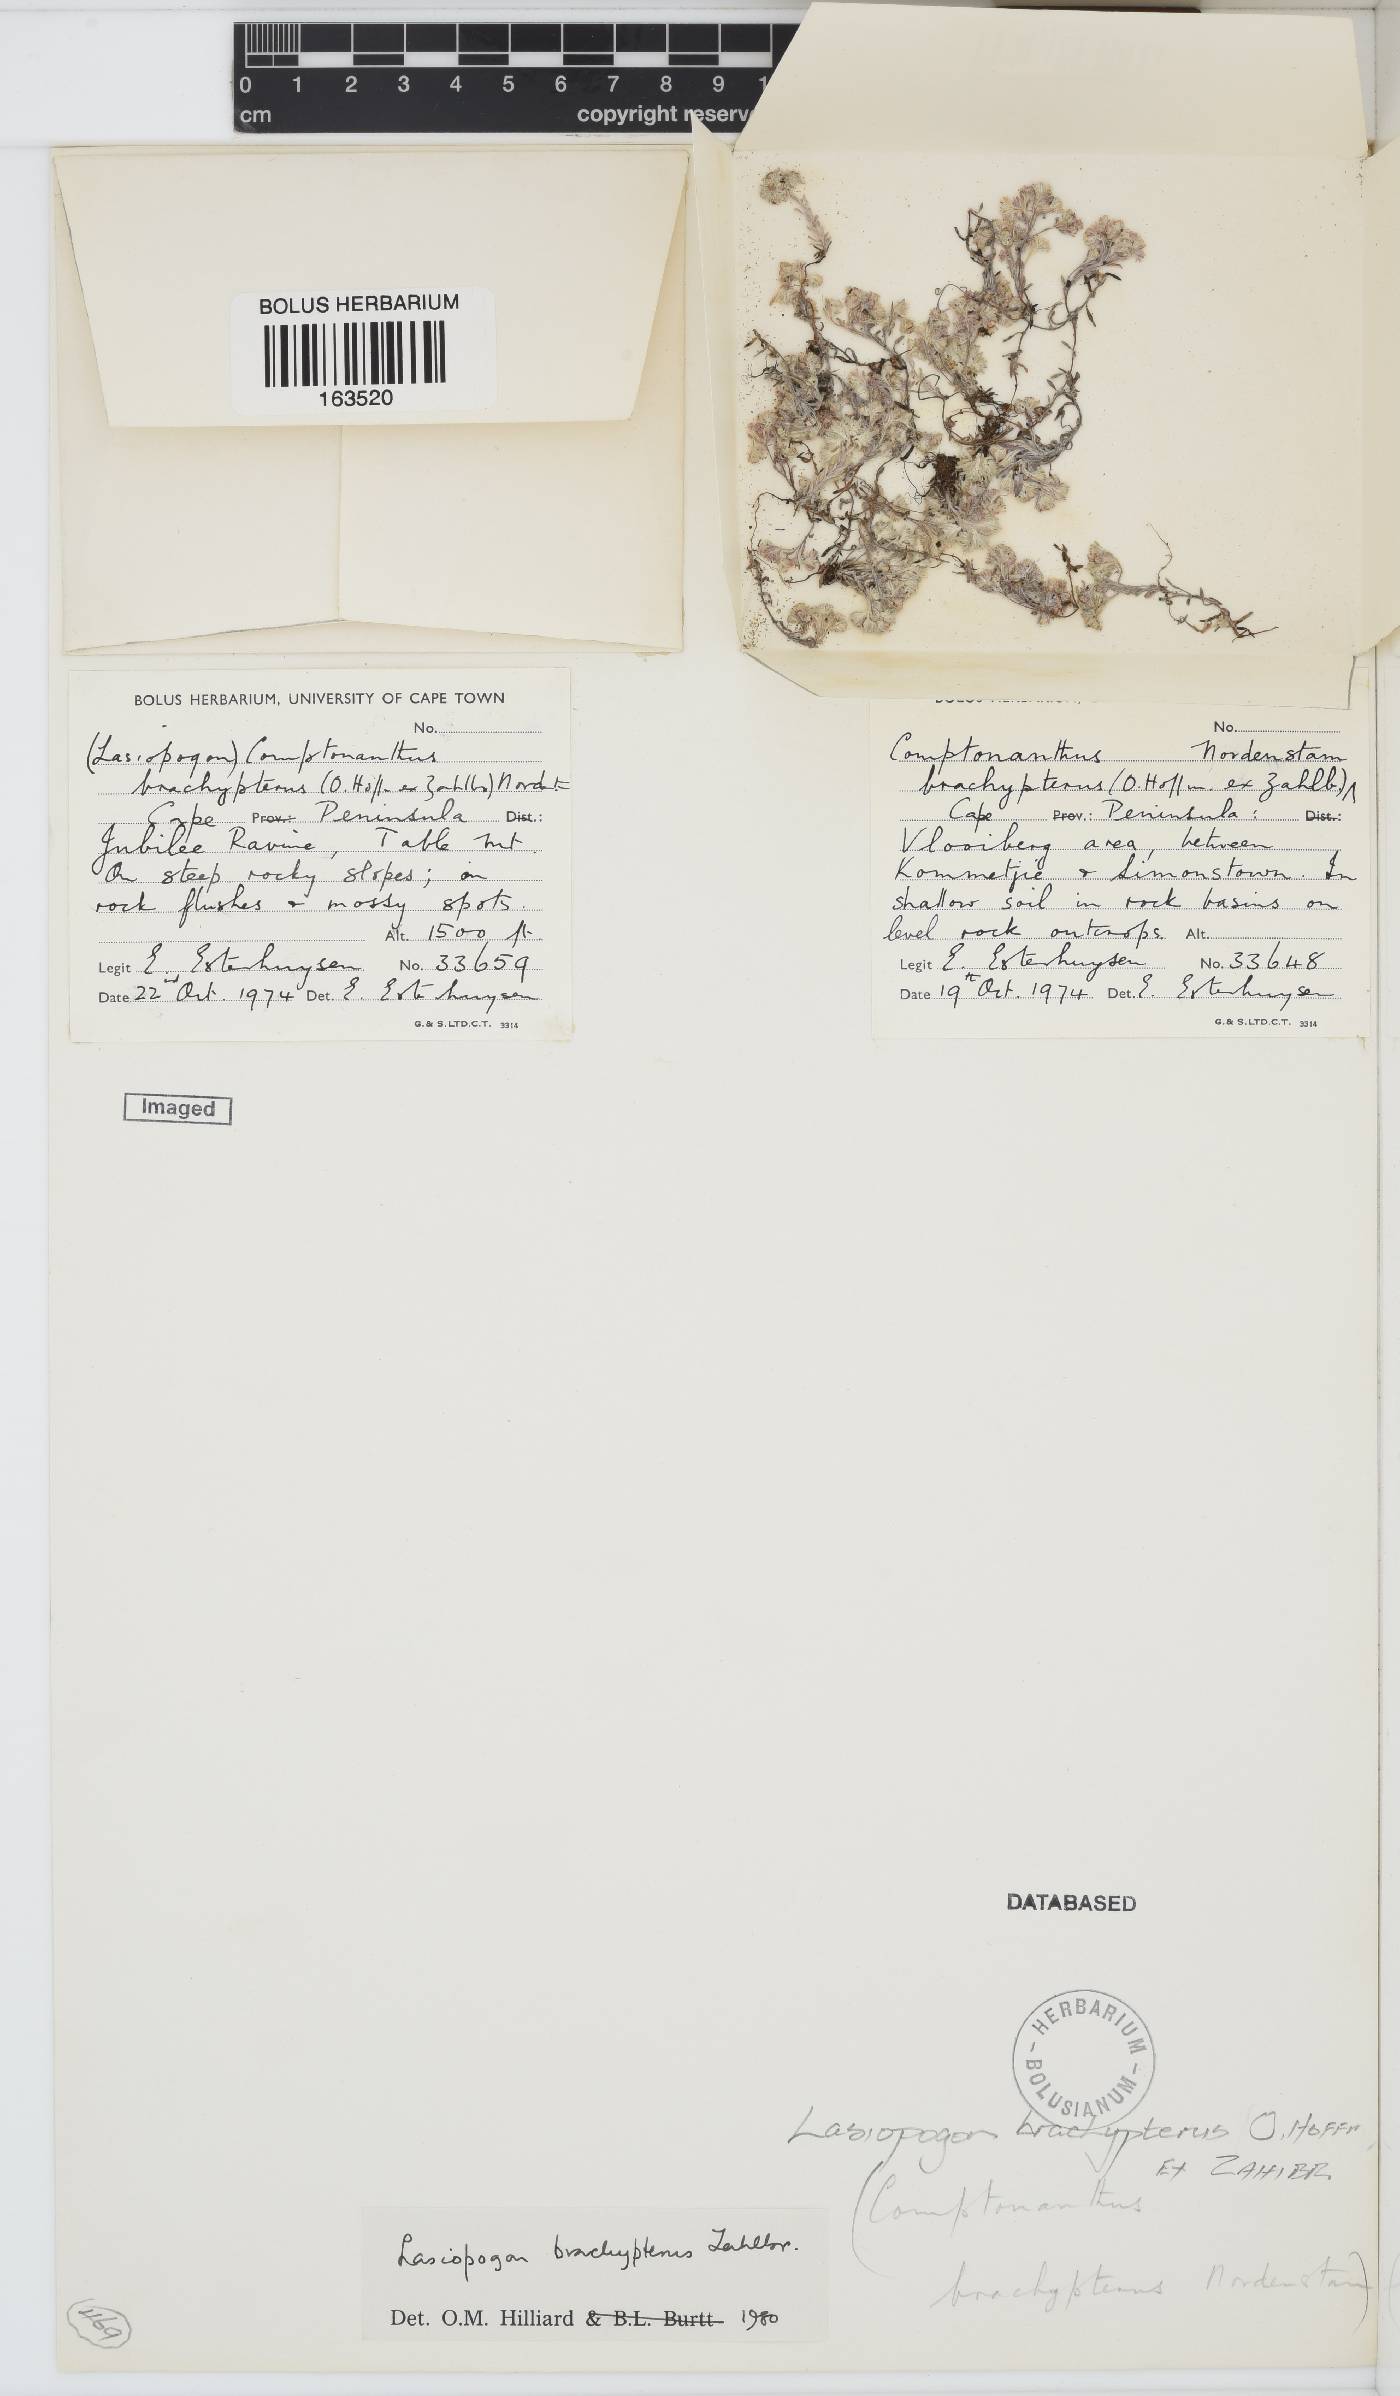 0 1 2 3 4 5 6 7 8 9 1
cm copyright reserve
BOLUS HERBARIUM
163520
BOLUS HERBARIUM, UNIVERSITY OF CAPE TOWN
No.
(Lasiopogon) Comptonanthus
brachypterus (O. Hoffm. ex Zahlbr) Nordst
Cape Prov.: Peninsula Dist.:
Jubilee Ravine, Table Mt.
On steep rocky slopes; in
rock flushes & mossy spots.
Alt. 1500 ft.
Legit E. Esterhuysen No. 33659
Date 22nd Oct. 1974 Det. E. Esterhuysen
G. & S. LTD. C.T. 3314
BOLUS HERBARIUM,
No.
Comptonanthus Nordenstam
brachypterus (O. Hoffm. ex Zahlb.)
Cape Prov.: Peninsula: Dist.:
Vlooiberg area, between
Kommetjie & Simonstown. In
shallow soil in rock basins on
level rock outcrops. Alt.
Legit E. Esterhuysen No. 33648
Date 19th Oct. 1974 Det. E. Esterhuysen
G. & S. LTD. C.T. 3314
Imaged
DATABASED
HERBARIUM
BOLUSIANUM
Lasiopogon brachypterus O. HOFFM
EX ZAHLBR
(Comptonanthus
brachypterus Nordenstam)
Lasiopogon brachypterus Zahlbr.
Det. O.M. Hilliard & B.L. Burtt 1980